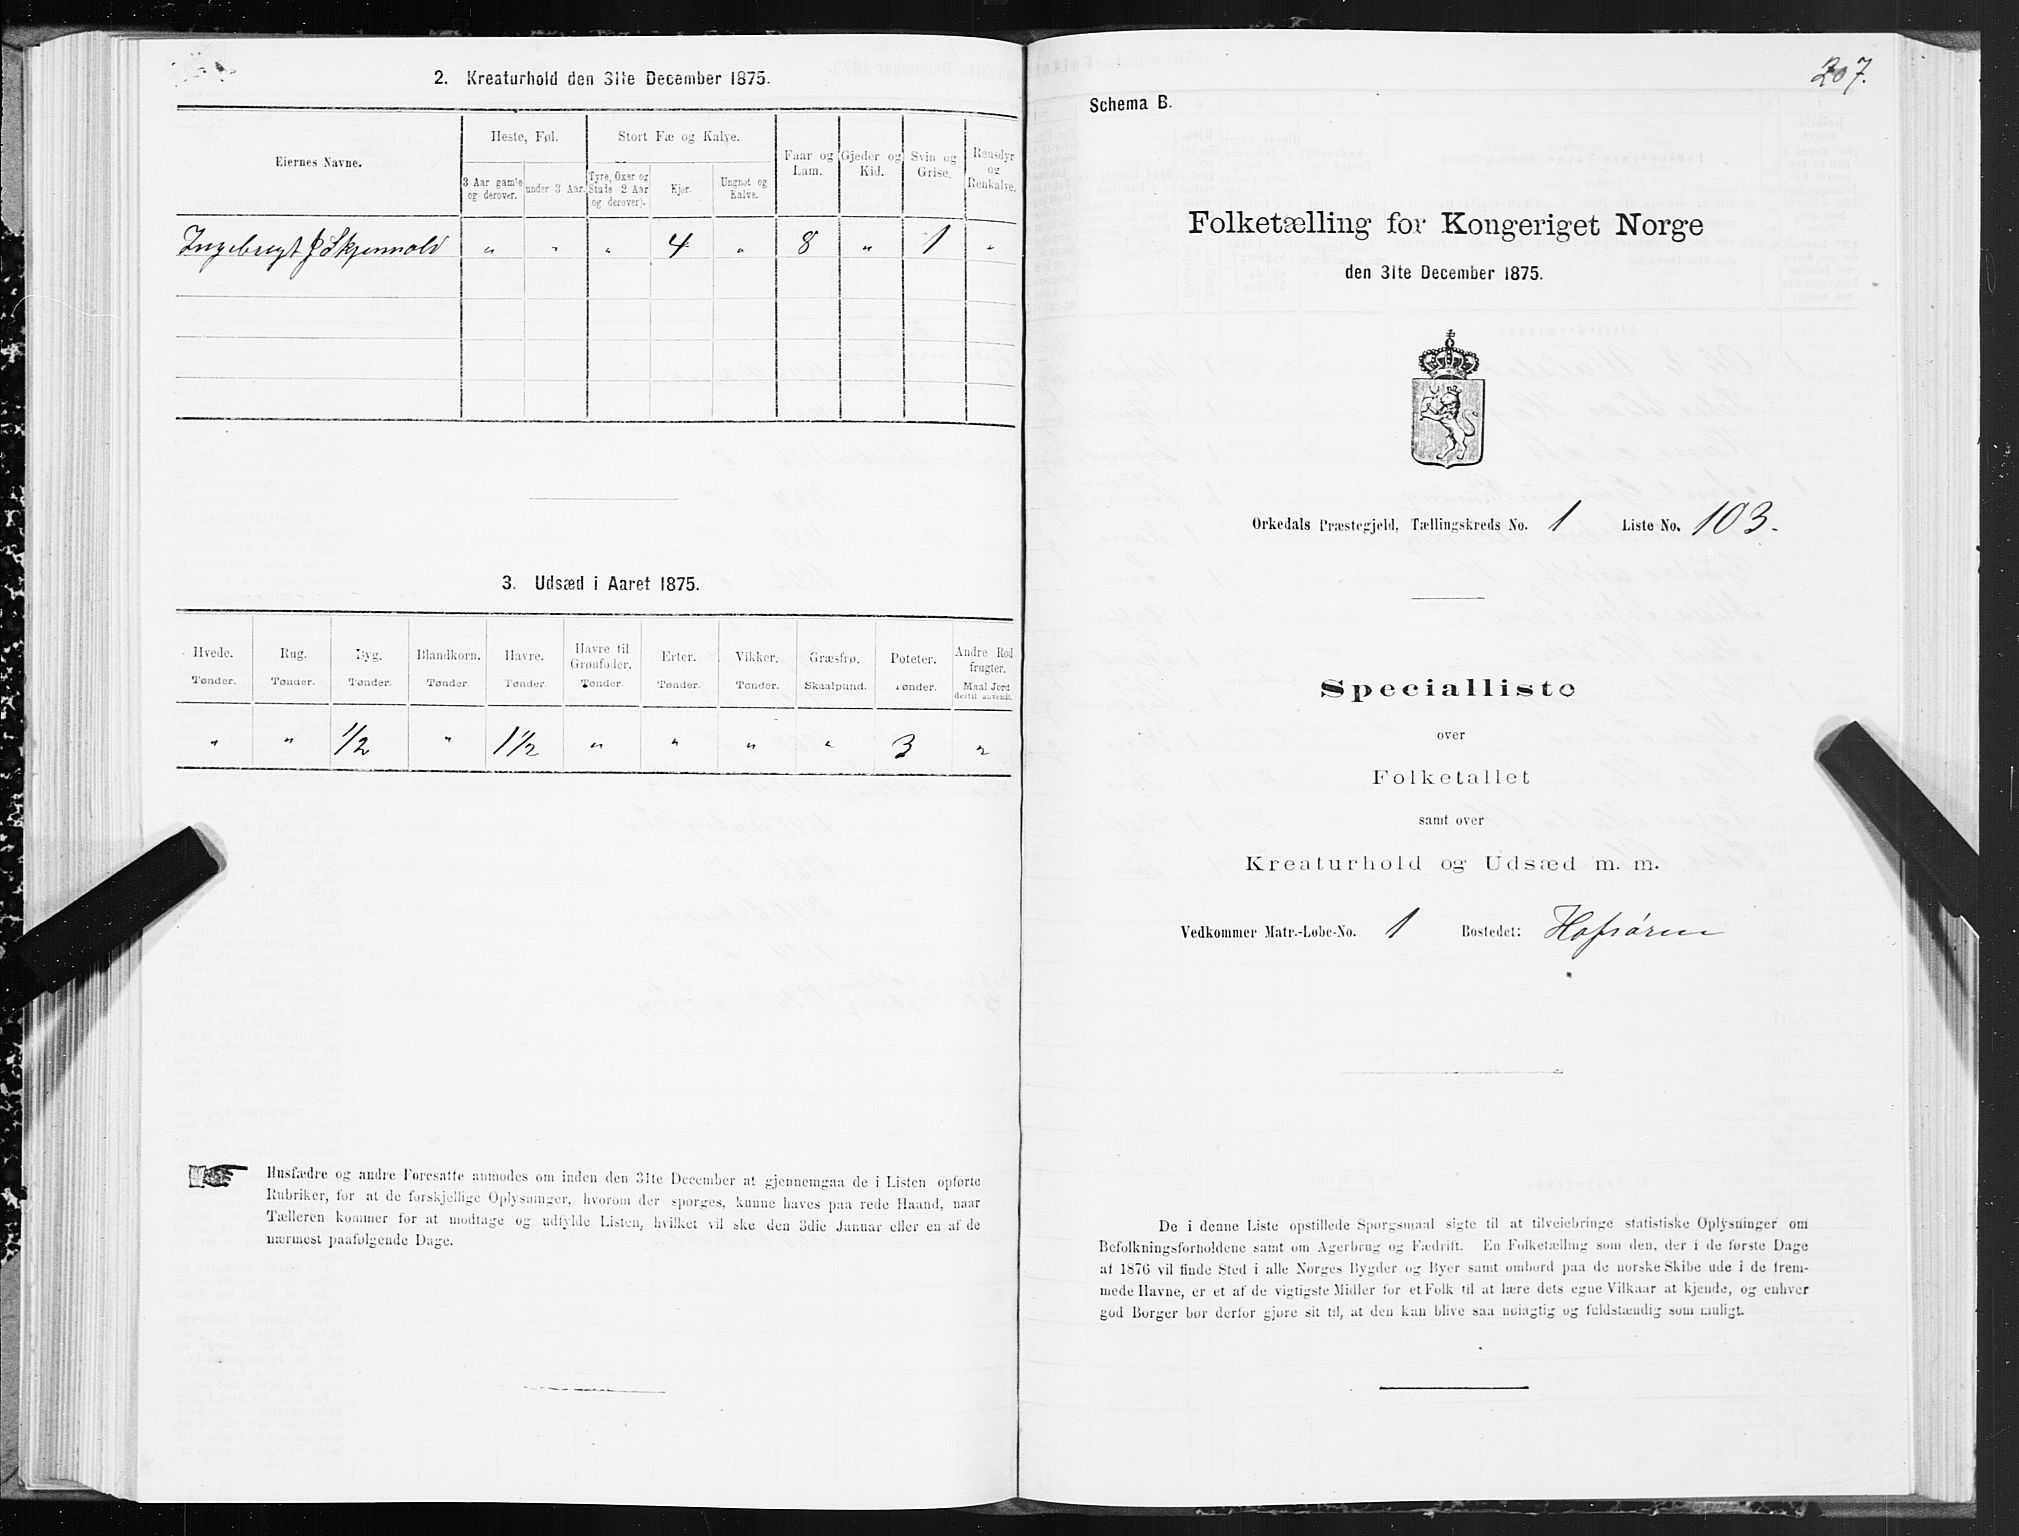 2. Kreaturhold den 31te December 1875.
Eiernes Navne.
Heste, Føl.
Stort Fæ og Kalve.
Faar og Lam.
Gjeder og Kid.
Svin og Grise.
Rensdyr og Renkalve.
3 Aar gamle og derover.
under 3 Aar.
Tyre, Oxer og Stude 2 Aar og derover).
Kjør.
Ungnøt og Kalve.
Ingebregt J Skjenvold " " " 4 " 8 " 1 "
3. Udsæd i Aaret 1875.
Hvede. Rug. Byg. Blandkorn. Havre. Havre til Grønfoder. Erter. Vikker. Græsfrø. Poteter. Andre Rodfrugter.
Tønder. Tønder. Tønder. Tønder. Tønder. Tønder. Tønder. Tønder. Skaalpund. Tønder. Maal Jord dertil anvendt.
" " 1/2 " 1 1/2 " " " " 3 "
Husfædre og andre Foresatte anmodes om inden den 31te December at gjennemgaa de i Listen opførte
Rubriker, for at de forskjellige Oplysninger, hvorom der spørges, kunne haves paa rede Haand, naar
Tælleren kommer for at modtage og udfylde Listen, hvilket vil ske den 3die Januar eller en af de
nærmest paafølgende Dage.
207.
Schema B.
Folketælling for Kongeriget Norge
den 31te December 1875.
Orkedals Præstegjeld, Tællingskreds No. 1 Liste No. 103.
Specialliste
over
Folketallet
samt over
Kreaturhold og Udsæd m. m.
Vedkommer Matr.-Løbe-No. 1 Bostedet: Hofsøren
De i denne Liste opstillede Spørgsmaal sigte til at tilveiebringe statistiske Oplysninger om
Befolkningsforholdene samt om Agerbrug og Fædrift. En Folketælling som den, der i de første Dage
af 1876 vil finde Sted i alle Norges Bygder og Byer samt ombord paa de norske Skibe ude i de frem-
mede Havne, er et af de vigtigste Midler for et Folk til at lære dets egne Vilkaar at kjende, og enhver
god Borger bør derfor gjøre sit til, at den kan blive saa nøiagtig og fuldstændig som muligt.